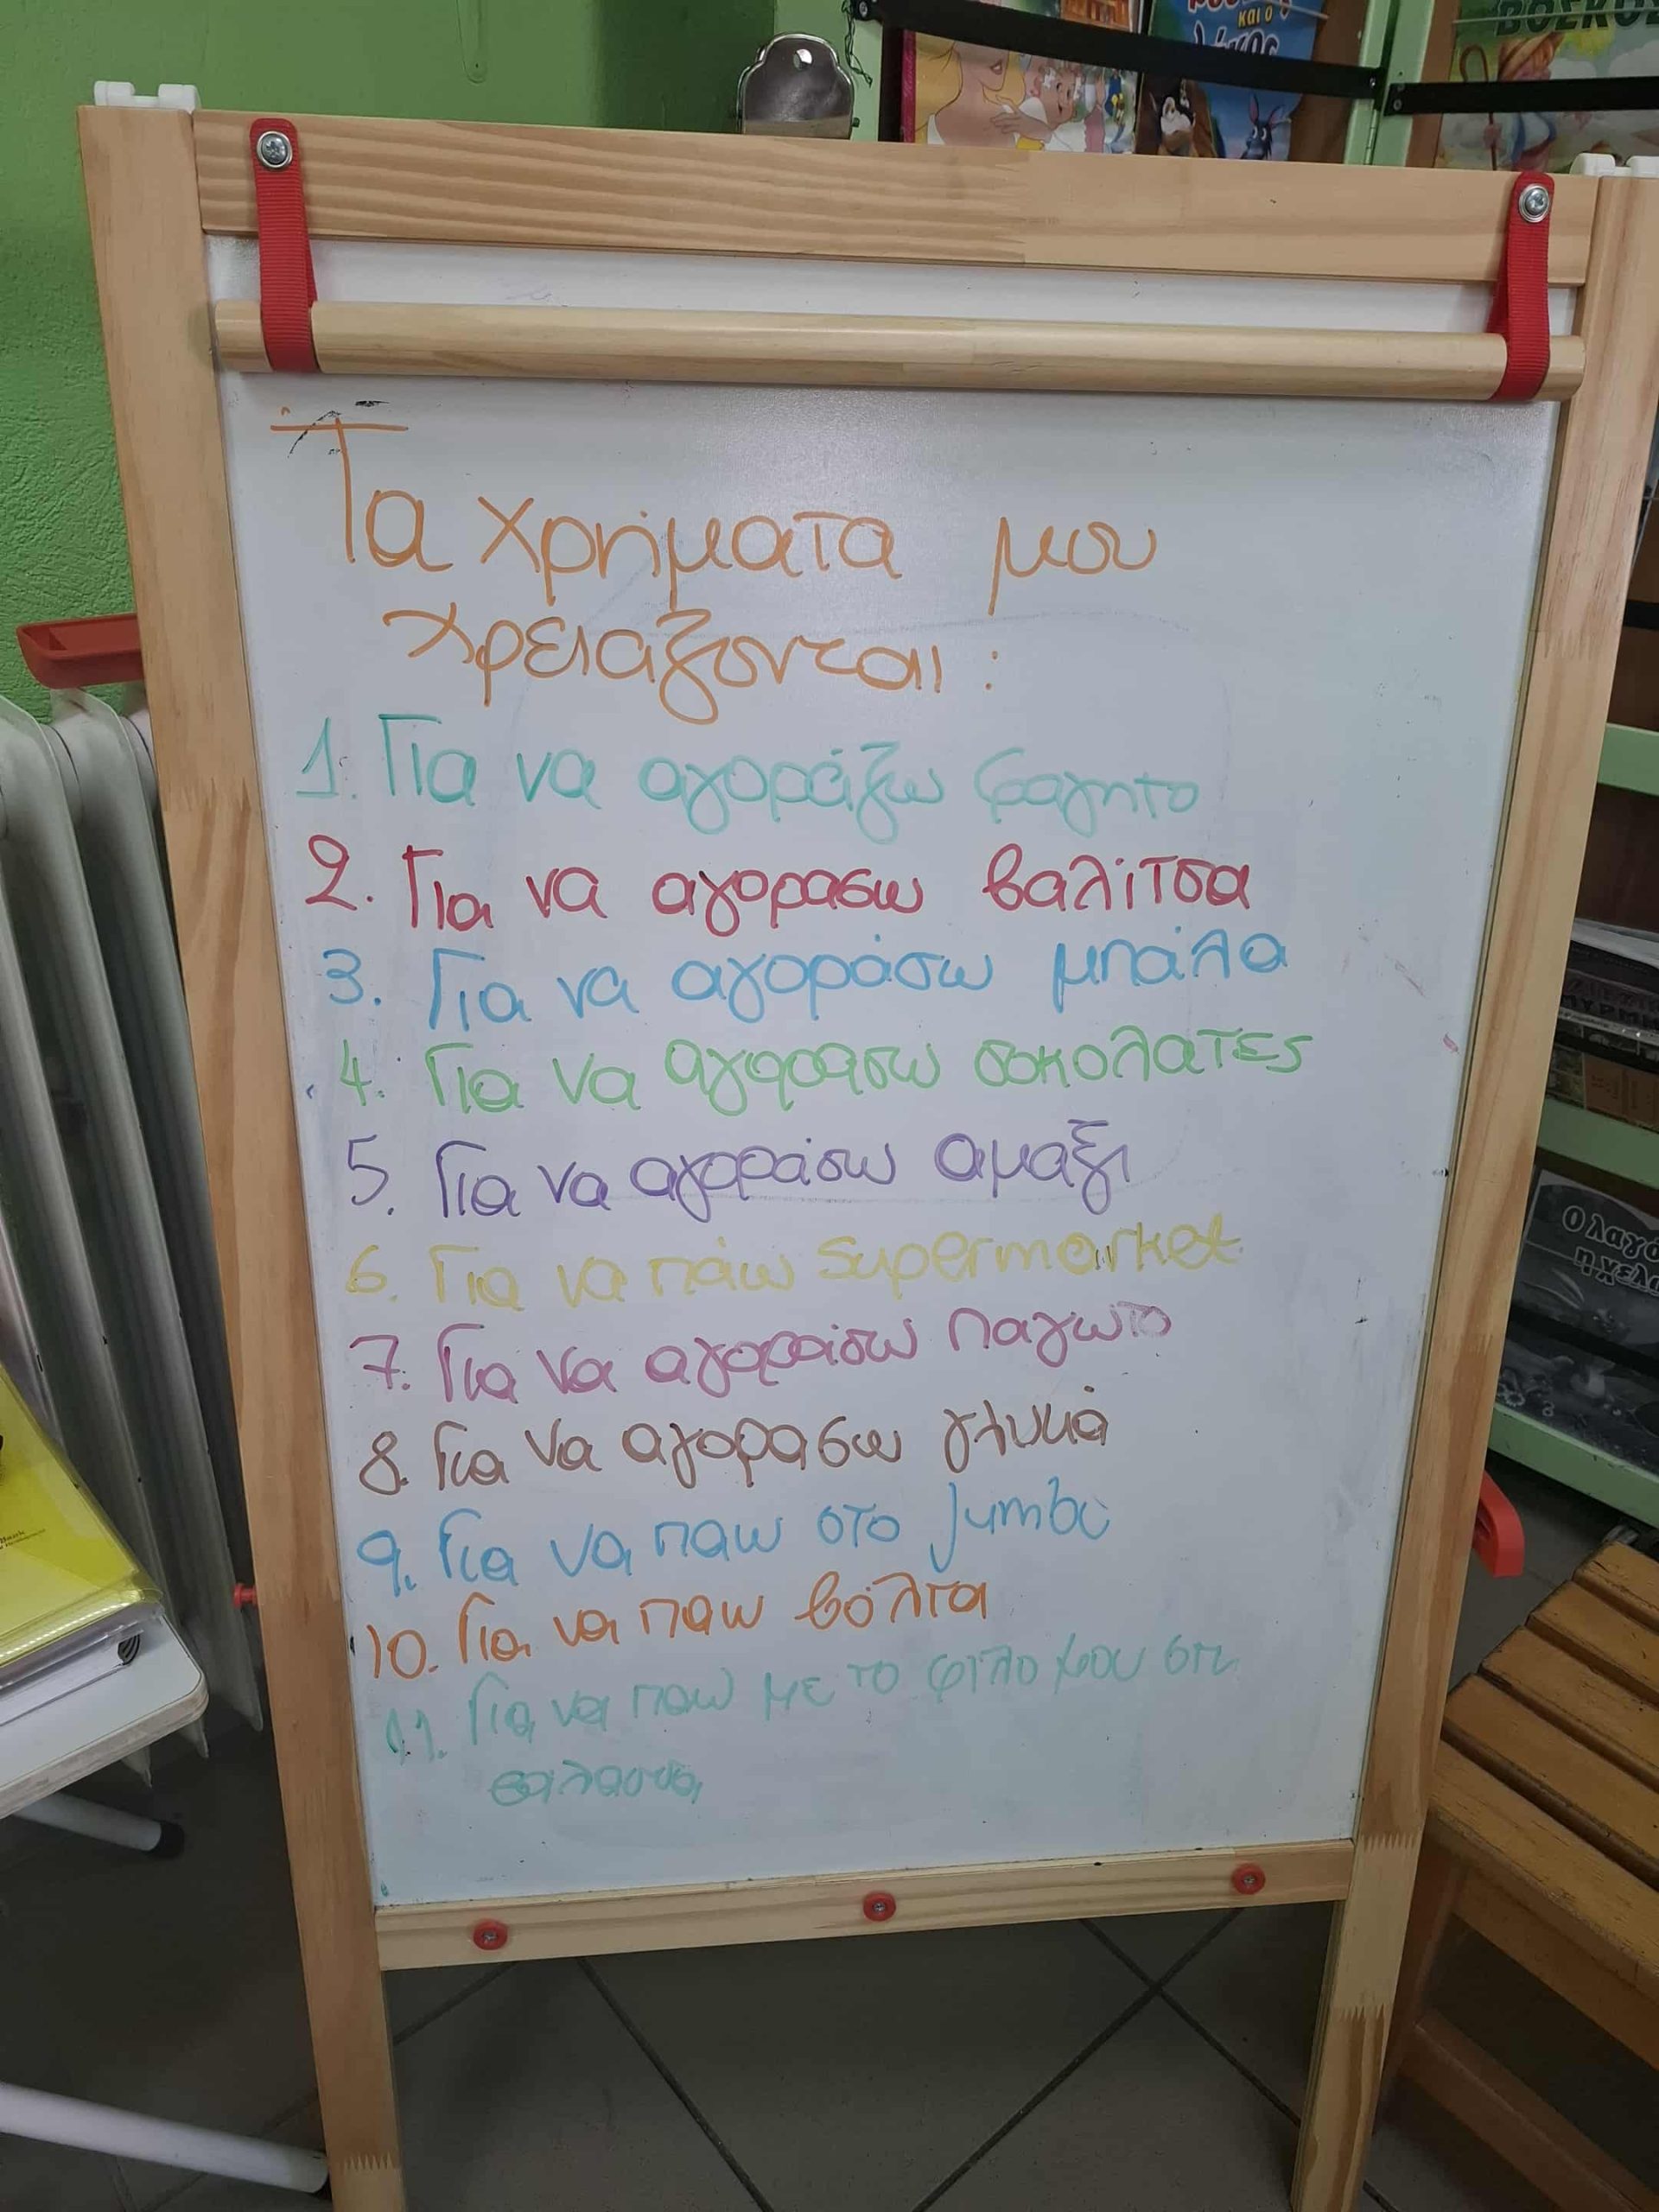 και ο
λύκος
ΒΟΣΚΟΣ
Τα χρήματα μου
χρειάζονται :
1. Για να αγοράζω φαγητο
2. Για να αγορασω βαλίτσα
3. Για να αγοράσω μπάλα
4. Για να αγορασω σοκολατες
5. Για να αγοράσω αμαξι
6. Για να πάω supermarket
7. Για να αγοράσω παγωτο
8. Για να αγορασω γλυκά
9. Για να παω στο Jumbo
10. Για να παω βόλτα
11. Για να παω με το φίλο μου στη
θαλασσα
Ο λαγό
η χελ